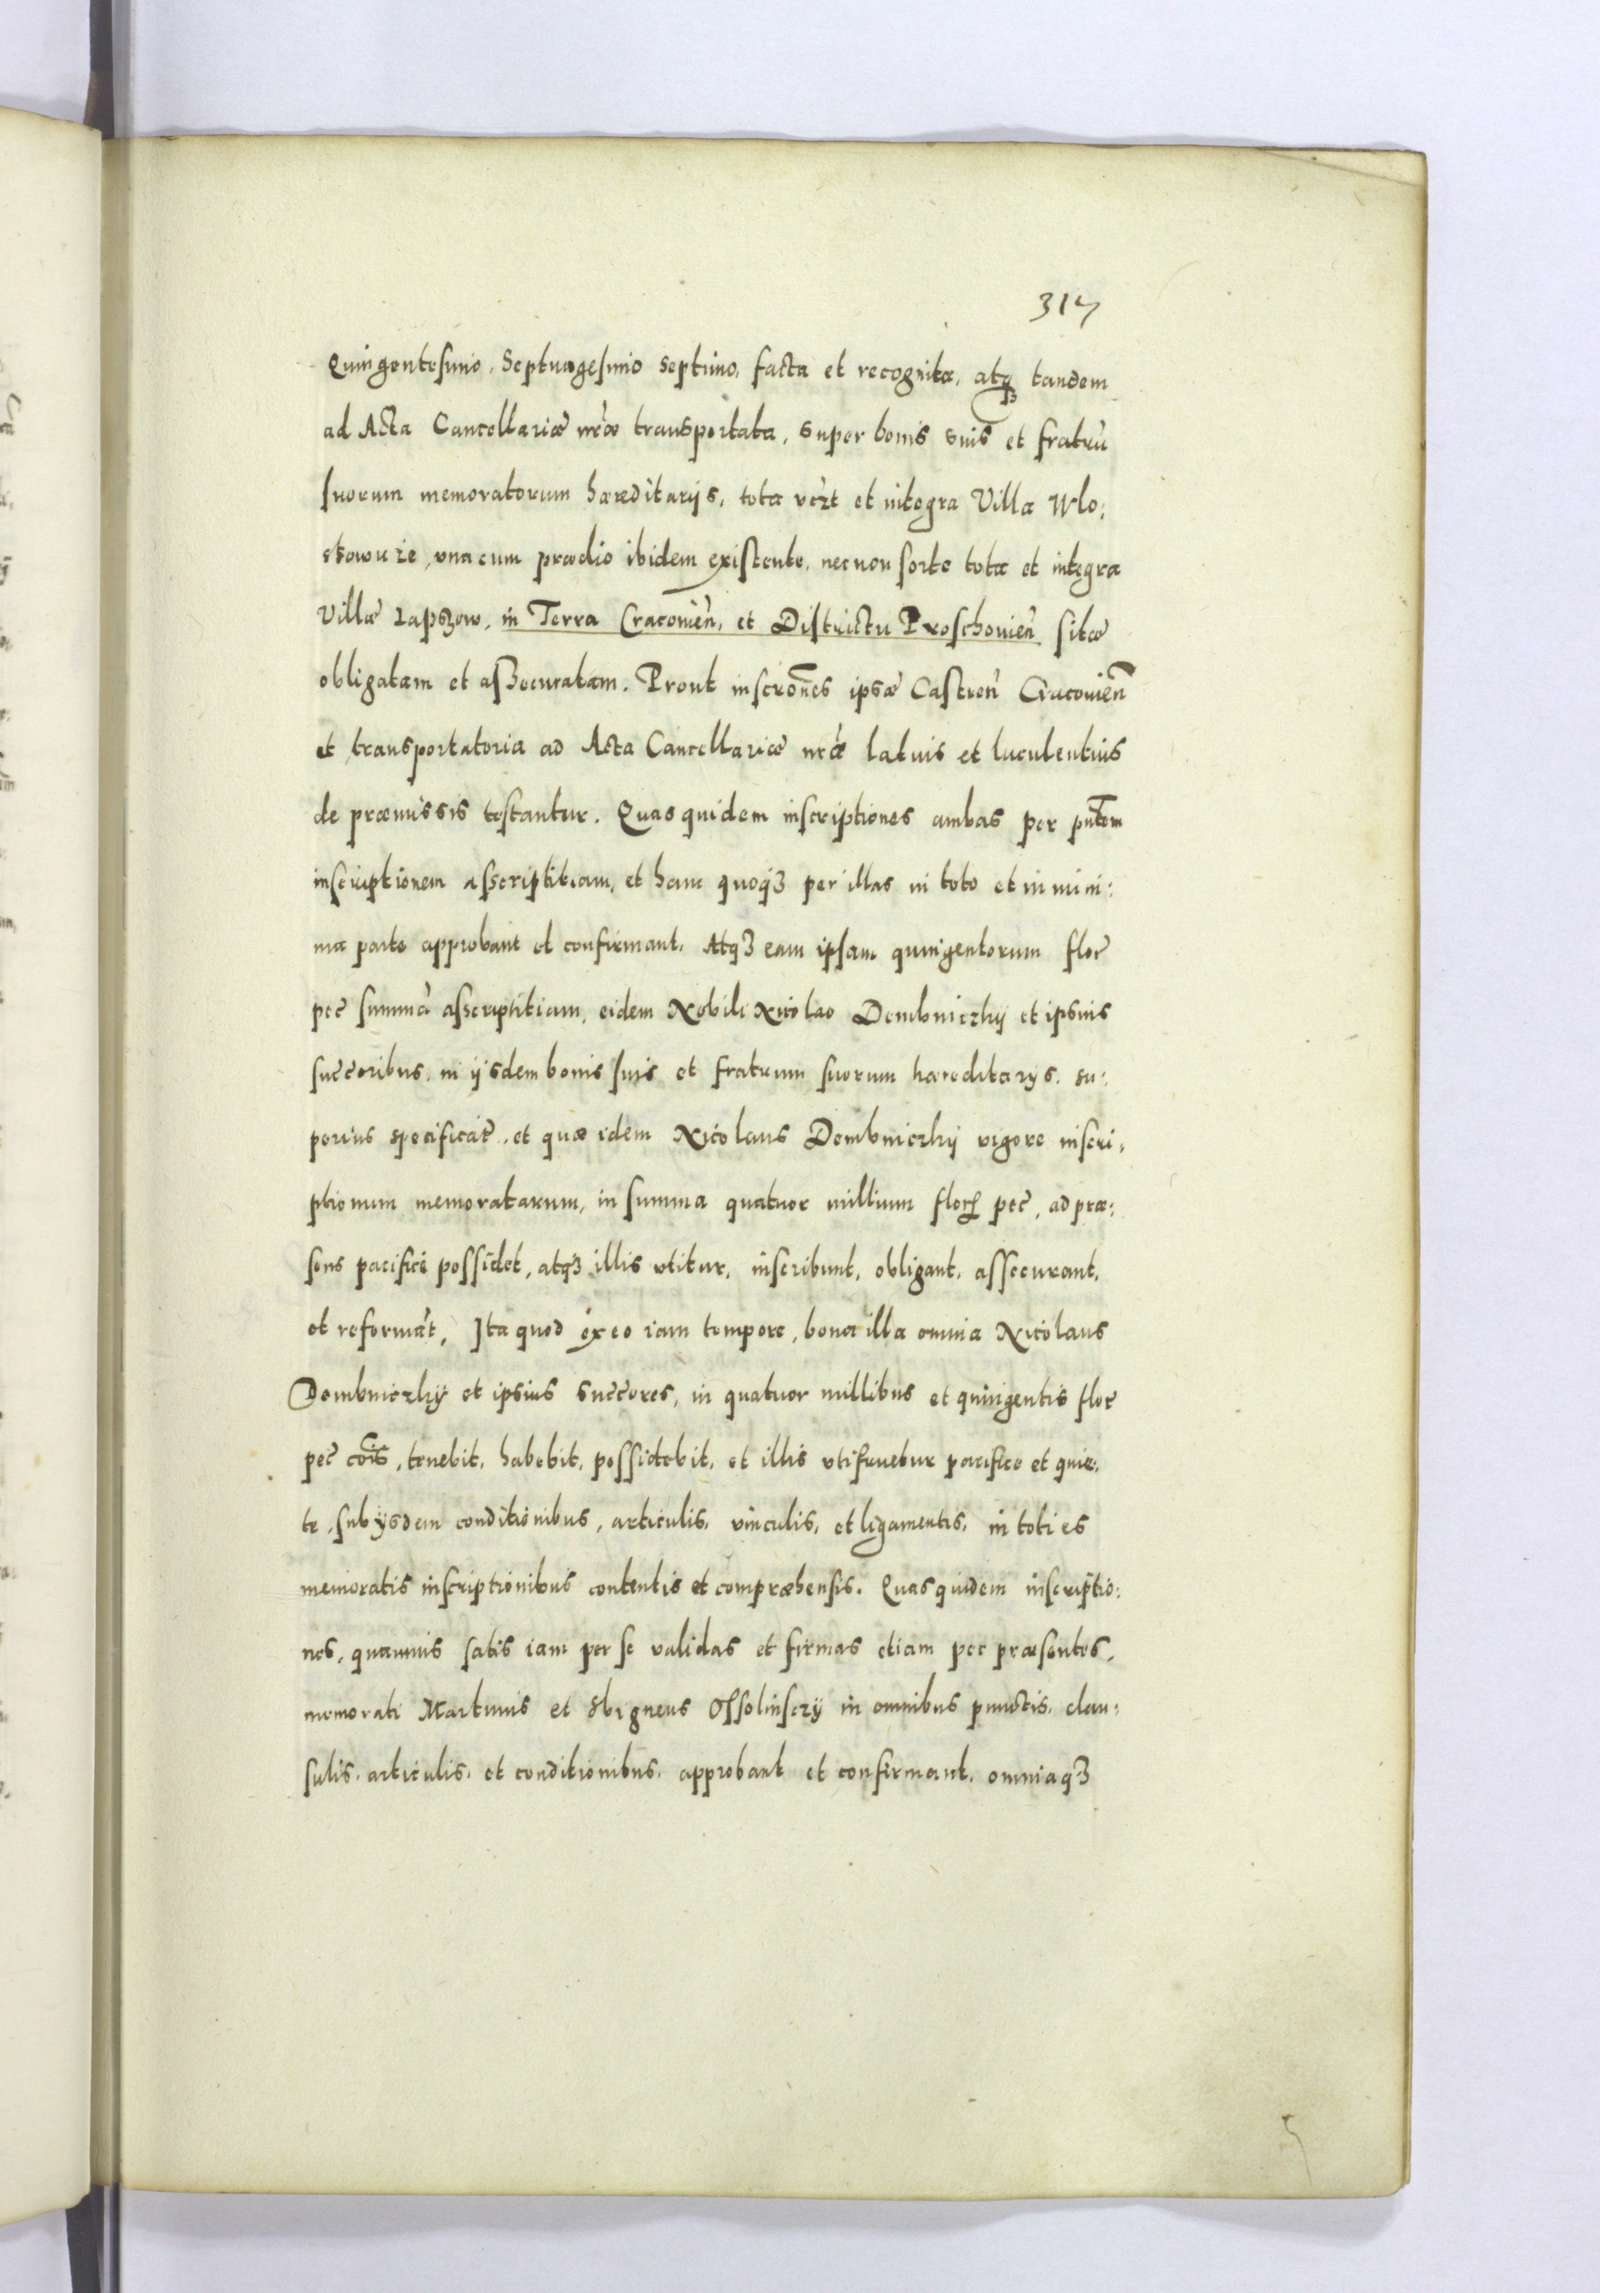 317
Quingentesimo, Septuagesimo septimo, facta et recognita, atq3 tandem
ad Acta Cancellariæ nr̃æ transportata, super bonis suis et fratrũ
suorum memoratorum hæreditarijs, tota vc̃zt et integra Villa Wlo:
stowicze, vna cum prædio ibidem existente, nec non sorte tota et integra
Villæ Lapszow, in Terra Cracovień, et Districtu Proschovień sitæ
obligatam et assecuratam. Prout inscriõnes ipsæ Castreń Cracovień
et transportatoria ad Acta Cancellariæ nr̃æ latius et luculentius
de præmissis testantur. Quas quidem inscriptiones ambas per pñtem
inscriptionem asscriptitiam, et hanc quoq3 per illas in toto et in mini:
ma parte approbant et confirmant. Atq3 eam ipsam quingentorum flor̃
pec̃ summã asscriptitiam, eidem Nobili Nicolao Dembniczky et ipsius
succ̃oribus, in ijsdem bonis suis et fratrum suorum hæreditarijs, su:
perius specificat̃, et quæ idem Nicolaus Dembniczky vigore inscri:
ptionum memoratarum, in summa quatuor millium flor̃ pec̃, ad præ:
sens pacificè possidet, atq3 illis vtitur, inscribunt, obligant, assecurant,
et reformãt, Ita quod ex eo iam tempore, bona illa omnia Nicolaus
Dembniczky et ipsius succ̃ores, in quatuor millibus et quingentis flor̃
pec̃ cõis, tenebit, habebit, possidebit, et illis vtifruetur pacifice et quie:
te, sub ijsdem conditionibus, articulis, vinculis, et ligamentis, in toties
memoratis inscriptionibus contentis et compræhensis. Quas quidem inscriptio:
nes, quamuis satis iam per se validas et firmas etiam per præsentes,
memorati Martinus et Sbigneus Ossolinsczy in omnibus punctis, clau:
sulis, articulis, et conditionibus, approbant et confirmant, omniaq3